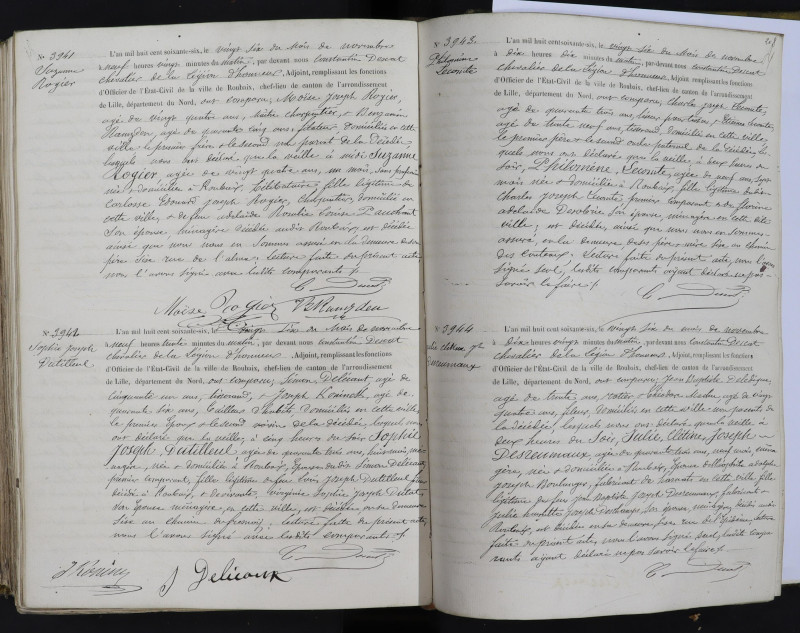 N° 3941
Suzanne
Rogier
L'an mil huit cent soixante-six, le vingt six du mois de novembre
à neuf heures vingt minutes du matin, par devant nous Constantin Descat
chevalier de la légion d'honneur, Adjoint, remplissant les fonctions
d'Officier de l'État-Civil de la ville de Roubaix, chef-lieu de canton de l'arrondissement
de Lille, département du Nord, ont comparu, Moïse Joseph Rogier,
âgé de vingt quatre ans, maître charpentier, & Benjamin
Ramsden, âgé de quarante cinq ans, filateur, domiciliés en cette
ville, le premier frère & le second non parent de la décédée,
lesquels nous ont déclaré que la veille à midi Suzanne
Rogier, âgée de vingt quatre ans, un mois, sans profession
née & domiciliée à Roubaix, célibataire, fille légitime de
Edouard Joseph Rogier, charpentier, domicilié en
cette ville, & de feu adelaïde
Son épouse, ménagère décédée audit Roubaix, est décédée
ainsi que nous nous en sommes assuré en la demeure de son
père sise rue de l'alma; lecture faite du présent acte
nous l'avons signé avec lesdits comparants./.
C. Descat
Moïse Rogier BRamsden
N° 3942
Sophie Joseph
Dutilleul
L'an mil huit cent soixante-six, le vingt six du mois de novembre
à neuf heures trente minutes du matin, par devant nous Constantin Descat
chevalier de la légion d'honneur, Adjoint, remplissant les fonctions
d'Officier de l'État-Civil de la ville de Roubaix, chef-lieu de canton de l'arrondissement
de Lille, département du Nord, ont comparu, Simon Delécaut, âgé de
cinquante un ans, tisserand, & Joseph Koninck, âgé de
quarante six ans, tailleur d'habits, domiciliés en cette ville,
le premier époux & le second voisin de la décédée, lesquels nous
ont déclaré que la veille, à cinq heures du soir Sophie
Joseph Dutilleul, âgée de quarante trois ans, huit mois, mé-
nagère, née & domiciliée à Roubaix, épouse dudit Simon Delécaut,
premier comparant, fille légitime de feu Louis Joseph Dutilleul
décédé à Roubaix, & de vivante Virginie Sophie Joseph
son épouse ménagère, en cette ville, est décédée, en sa demeure
sise au chemin de; lecture faite du présent acte,
nous l'avons signé avec lesdits comparants./.
C. Descat
J Delécaux
N° 3943.
Philomène
Lecomte
L'an mil huit cent soixante-six, le vingt six du mois de novembre
à dix heures dix minutes du matin, par devant nous Constantin Descat
chevalier de la légion d'honneur, Adjoint, remplissant les fonctions
d'Officier de l'État-Civil de la ville de Roubaix, chef-lieu de canton de l'arrondissement
de Lille, département du Nord, ont comparu, Charles Joseph Lecomte,
âgé de quarante trois ans, & Lecomte,
âgé de trente neuf ans, tisserand, domiciliés en cette ville,
le premier père & le second oncle paternel de la décédée, les-
quels nous ont déclaré que la veille, à deux heures du
soir, Philomène, Lecomte, âgée de neuf ans, sept
mois née & domiciliée à Roubaix, fille légitime dudit
Charles Joseph Lecomte, premier comparant & de florine
adelaïde son épouse, ménagère en cette dite
ville; est décédée, ainsi que nous nous en sommes
assuré, en la demeure de ses père & mère sise au chemin
des Couteaux; lecture faite du présent acte, nous l'avons
signé seul, lesdits comparants ayant déclaré ne pas
savoir le faire./.
C. Descat
N° 3944
Julie Céline Jh
Desreumaux
L'an mil huit cent soixante-six, le vingt six du mois de novembre
à dix heures vingt minutes du matin, par devant nous Constantin Descat
chevalier de la légion d'honneur, Adjoint, remplissant les fonctions
d'Officier de l'État-Civil de la ville de Roubaix, chef-lieu de canton de l'arrondissement
de Lille, département du Nord, ont comparu, Jean Baptiste
âgé de trente, ans, & Théodore, âgé de vingt
quatre ans, fileur, domiciliés en cette ville non parents de
la décédée, lesquels nous ont déclaré que la veille à
deux heures du soir, Julie, Céline, Joseph
Desreumaux, âgée de quarante trois ans, neuf mois, ména-
gère, née & domiciliée à Roubaix, épouse de adolphe
Joseph Boulanger, fabricant de en cette ville, fille
légitime de feu Jean Baptiste Joseph Desreumaux, fabricant &
Julie Joseph son épouse, ménagère, décédés audit
Roubaix, est décédée en sa demeure, sise rue de l'Epidème, lecture
faite du présent acte, nous l'avons signé seul, lesdits compa-
rants ayant déclaré ne pas savoir le faire./.
C. Descat